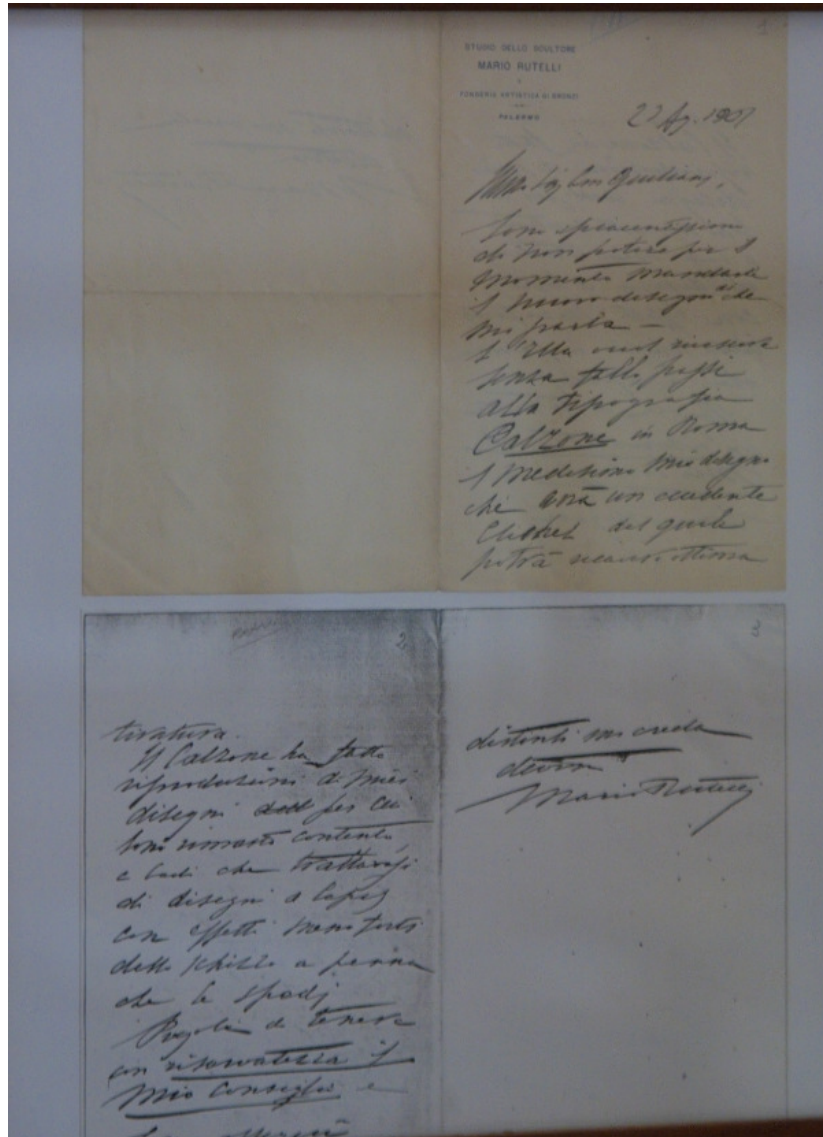 1
STUDIO DELLO SCULTORE
MARIO RUTELLI
E
FONDERIA ARTISTICA DI BRONZI
PALERMO
23 Ag. 1907
Sig. Giuliani,
Sono spiacentissimo
di non potere per il
momento mandarle
il nuovo disegno che
mi parla —
S'Ella vuol riuscire
senza falli passi
alla tipografia
Calzone in Roma
il medesimo mio disegno
che avrà un eccellente
Clichet del quale
potrà ottima
2
tiratura.
Il Calzone ha fatto
riproduzioni di miei
disegni per cui
sono rimasto contento
e badi che trattavasi
di disegni a lapis
con effetti meno forti
dello schizzo a penna
che le spedij
Pregola di tenere
con riservatezza il
mio consiglio e
3
distinti mi creda
devmo
Mario Rutelli